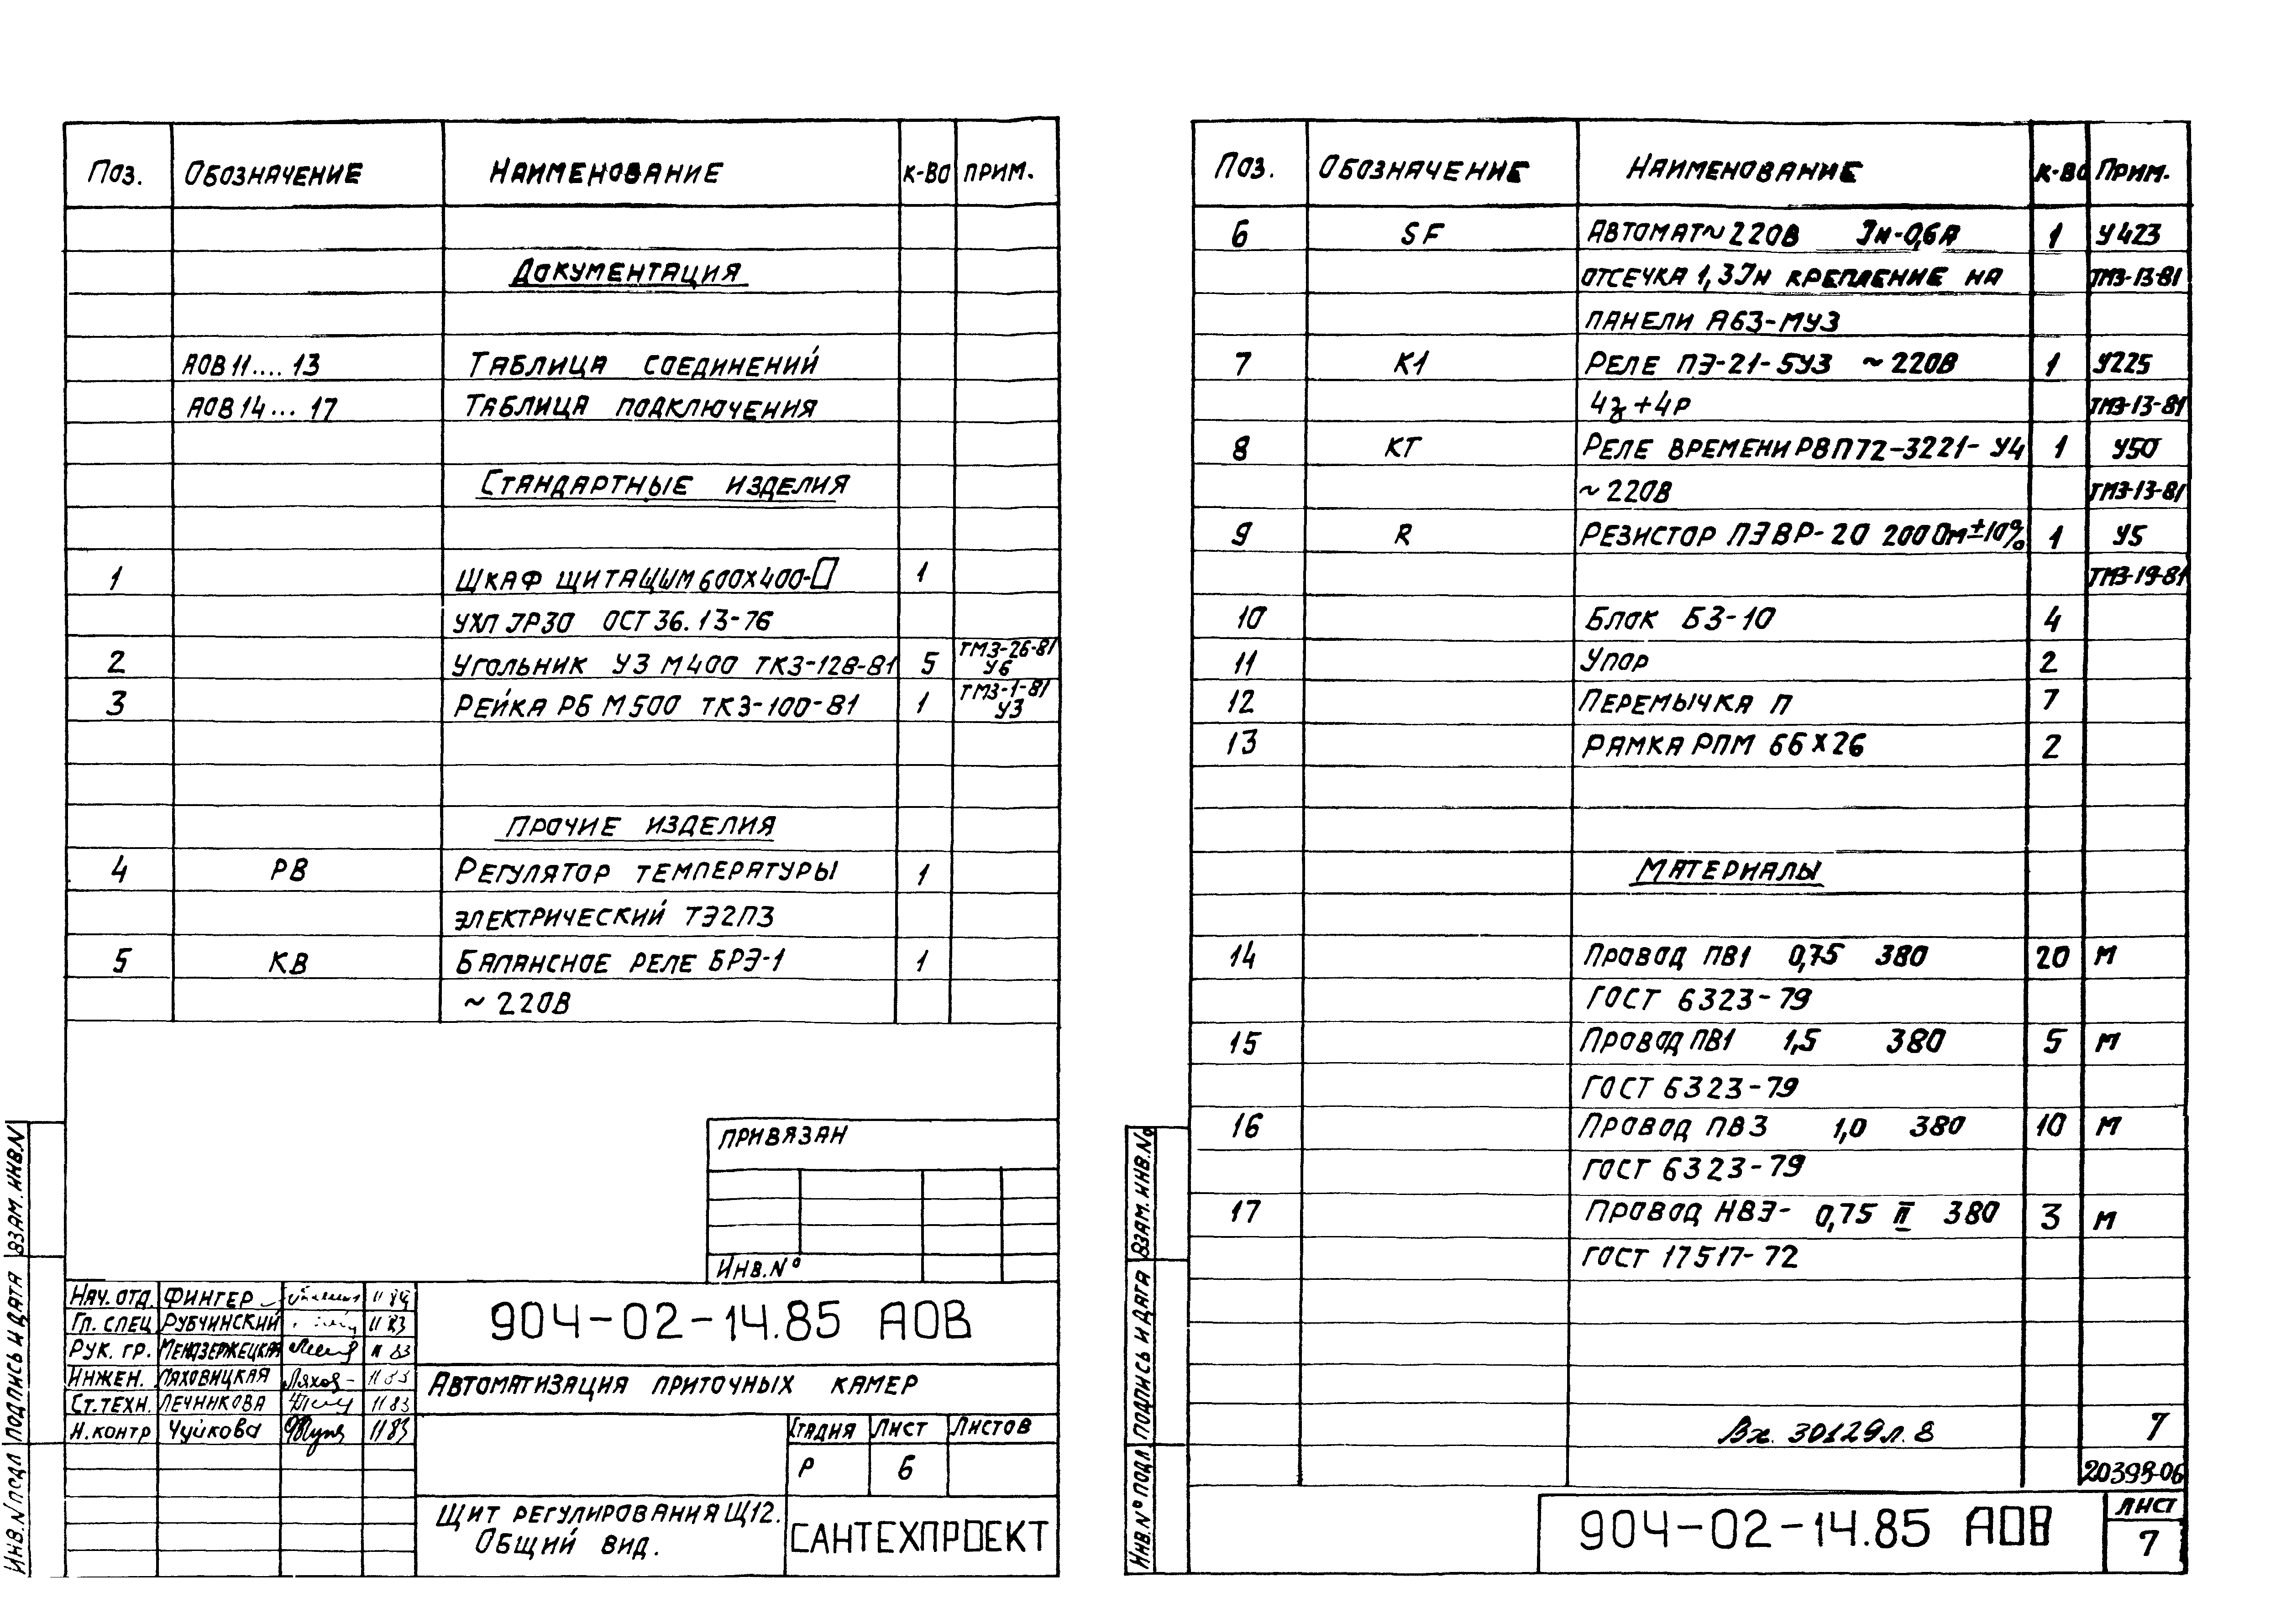 Поз. Обозначение Наименование К-во Прим.
Документация
АОВ 11.... 13 Таблица соединений
АОВ 14... 17 Таблица подключения
Стандартные изделия
1 Шкаф щита ЩШМ 600х400-□ 1
УХЛ IP30 ОСТ 36.13-76
2 Угольник УЗ М400 ТК3-128-81 5 ТМ3-26-81 У6
3 Рейка РБ М500 ТК3-100-81 1 ТМ3-1-81 У3
Прочие изделия
4 РВ Регулятор температуры 1
электрический ТЭ2П3
5 КВ Балансное реле БРЭ-1 1
~ 220В
Привязан
Инв. №
Нач. отд. Фингер 11 84
Гл. спец Рубчинский 11 83
Рук. гр. Мендзержецкая 11 83
Инжен. Ляховицкая Ляхов- 11 83
Ст. техн. Печникова 11 83
Н. контр Чуйкова 11 83
904-02-14.85 АОВ
Автоматизация приточных камер
Стадия Лист Листов
Р 6
Щит регулирования Щ12.
Общий вид.
САНТЕХПРОЕКТ
Инв. N подл Подпись и дата Взам. инв. N
Поз. Обозначение Наименование К-во Прим.
6 SF Автомат ~ 220В Iн-0,6А 1 У423
отсечка 1,3Iн крепление на ТМ3-13-81
панели А63-МУ3
7 К1 Реле ПЭ-21-5У3 ~ 220В 1 У225
4з + 4р ТМ3-13-81
8 КТ Реле времени РВП72-3221-У4 1 У50
~ 220В ТМ3-13-81
9 R Резистор ПЭВР-20 200 Ом ±10% 1 У5
ТМ3-19-81
10 Блок БЗ-10 4
11 Упор 2
12 Перемычка П 7
13 Рамка РПМ 66х26 2
Материалы
14 Провод ПВ1 0,75 380 20 м
ГОСТ 6323-79
15 Провод ПВ1 1,5 380 5 м
ГОСТ 6323-79
16 Провод ПВ3 1,0 380 10 м
ГОСТ 6323-79
17 Провод НВЭ- 0,75 II 380 3 м
ГОСТ 17517-72
Вх. 30129 л. 8 7
20398-06
904-02-14.85 АОВ
Лист
7
Инв. № подл Подпись и дата Взам. инв. №